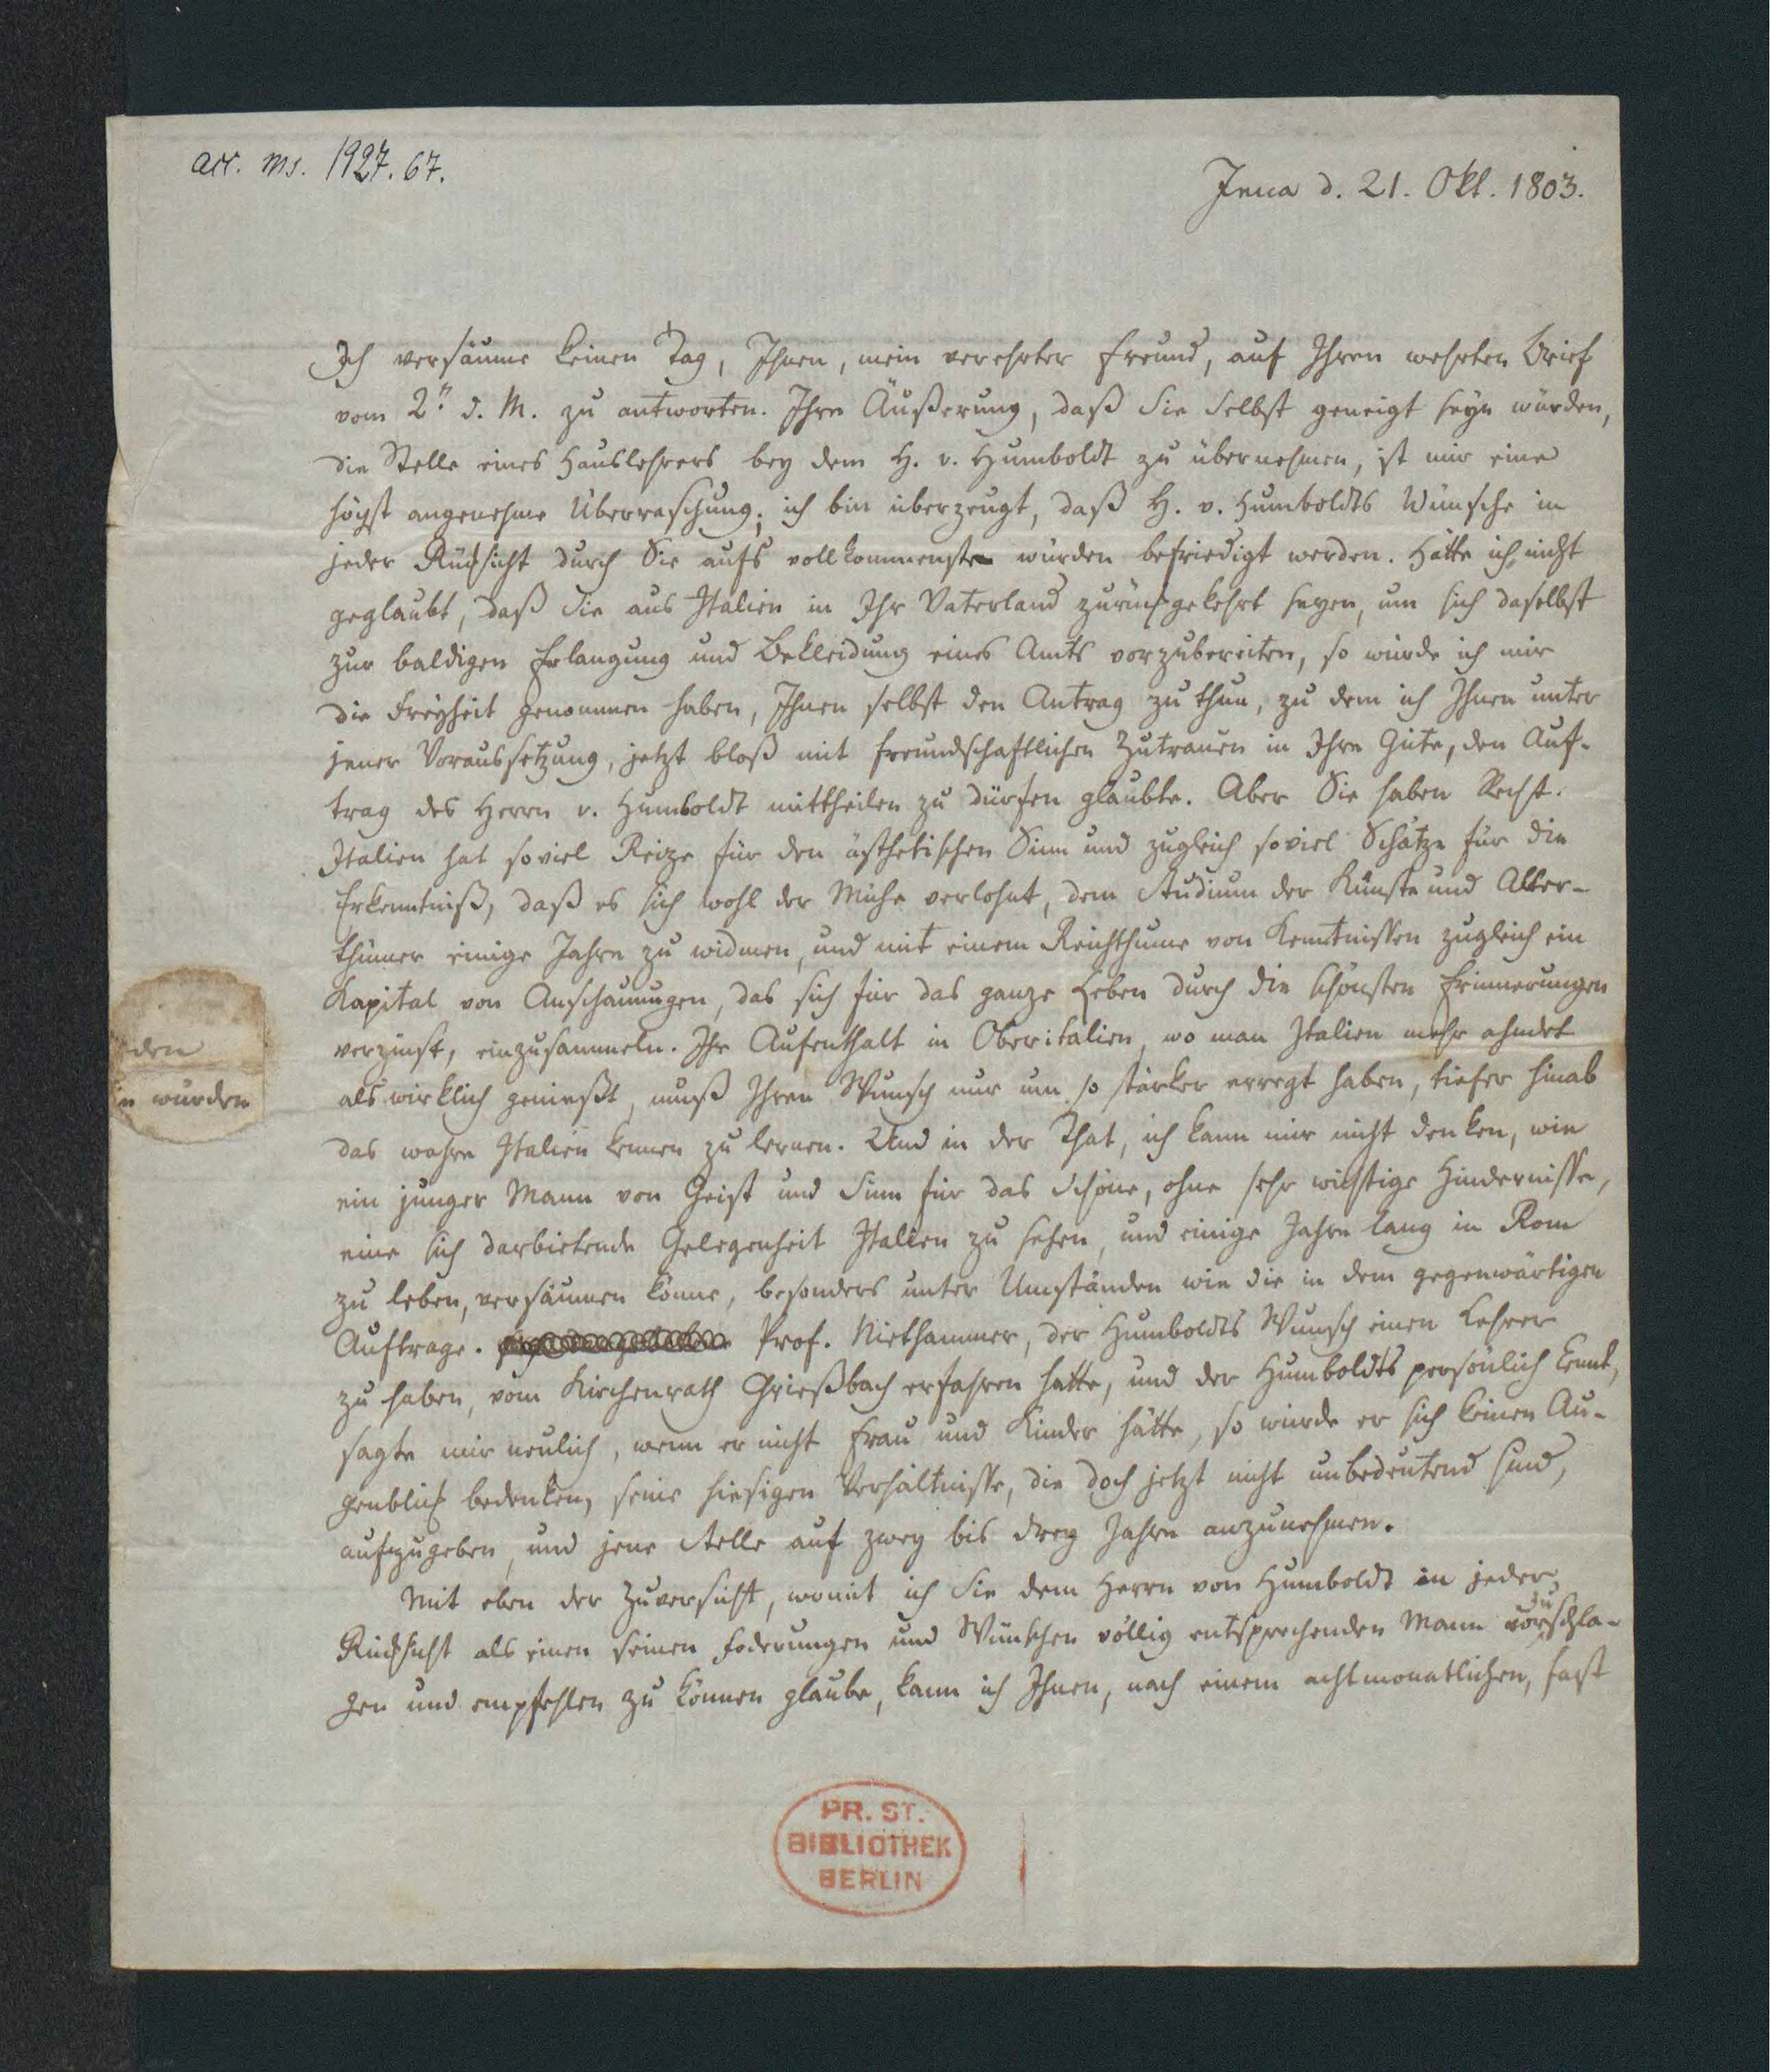 acc. ms. 1927. 67.
Jena d. 21. Okt. 1803.
Ich versäume keinen Tag, Ihnen, mein verehrter Freund, auf Ihren wehrten Brief
vom 2n d. M. zu antworten. Ihre Äußerung, daß Sie Selbst geneigt seyn würden,
die Stelle eines Hauslehrers bey dem H. v. Humboldt zu übernehmen, ist mir eine
höchst angenehme Überraschung; ich bin überzeugt, daß H. v. Humboldts Wünsche in
jeder Rücksicht durch Sie aufs vollkommenste würden befriedigt werden. Hätte ich nicht
geglaubt, daß Sie aus Italien in Ihr Vaterland zurückgekehrt seyen, um sich daselbst
zur baldigen Erlangung und Bekleidung eines Amts vorzubereiten, so würde ich mir
die Freyheit genommen haben, Ihnen selbst den Antrag zu thun, zu dem ich Ihnen unter
jener Voraussetzung, jetzt bloß mit freundschaftlichen Zutrauen in Ihre Güte, den Auf-
trag des Herrn v. Humboldt mittheilen zu dürfen glaubte. Aber Sie haben Recht.
Italien hat soviel Reize für den ästhetischen Sinn und zugleich soviel Schätze für die
Erkenntniß, daß es sich wohl der Mühe verlohnt, dem Studium der Künste und Alter-
thümer einige Jahre zu widmen, und mit einem Reichthume von Kenntnissen zugleich ein
Kapital von Anschauungen, das sich für das ganze Leben durch die schönsten Erinnerungen
verzinst, einzusammeln. Ihr Aufenthalt in Oberitalien, wo man Italien mehr ahndet
als wirklich genießt, muß Ihren Wunsch nur um so stärker erregt haben, tiefer hinab
das wahre Italien kennen zu lernen. Und in der That, ich kann mir nicht denken, wie
ein junger Mann von Geist und Sinn für das Schöne, ohne sehr wichtige Hindernisse,
eine sich darbietende Gelegenheit Italien zu sehen, und einige Jahre lang in Rom
zu leben, versäumen könne, besonders unter Umständen wie die in dem gegenwärtigen
Auftrage. Prof. Niethammer, der Humboldts Wunsch einen Lehrer
zu haben, vom Kirchenrath Grießbach erfahren hatte, und der Humboldts persönlich kennt,
sagte mir neulich, wenn er nicht Frau und Kinder hätte, so würde er sich keinen Au-
genblick bedenken, seine hiesigen Verhältnisse, die doch jetzt nicht unbedeutend sind,
aufzugeben, und jene Stelle auf zwey bis drey Jahre anzunehmen.
Mit eben der Zuversicht, womit ich Sie dem Herrn von Humboldt in jeder
Rücksicht als einen seinen Foderungen und Wünschen völlig entsprechenden Mann vorzuschla-
gen und empfehlen zu können glaube, kann ich Ihnen, nach einem achtmonatlichen, fast
den
würden
PR. ST.
BIBLIOTHEK
BERLIN